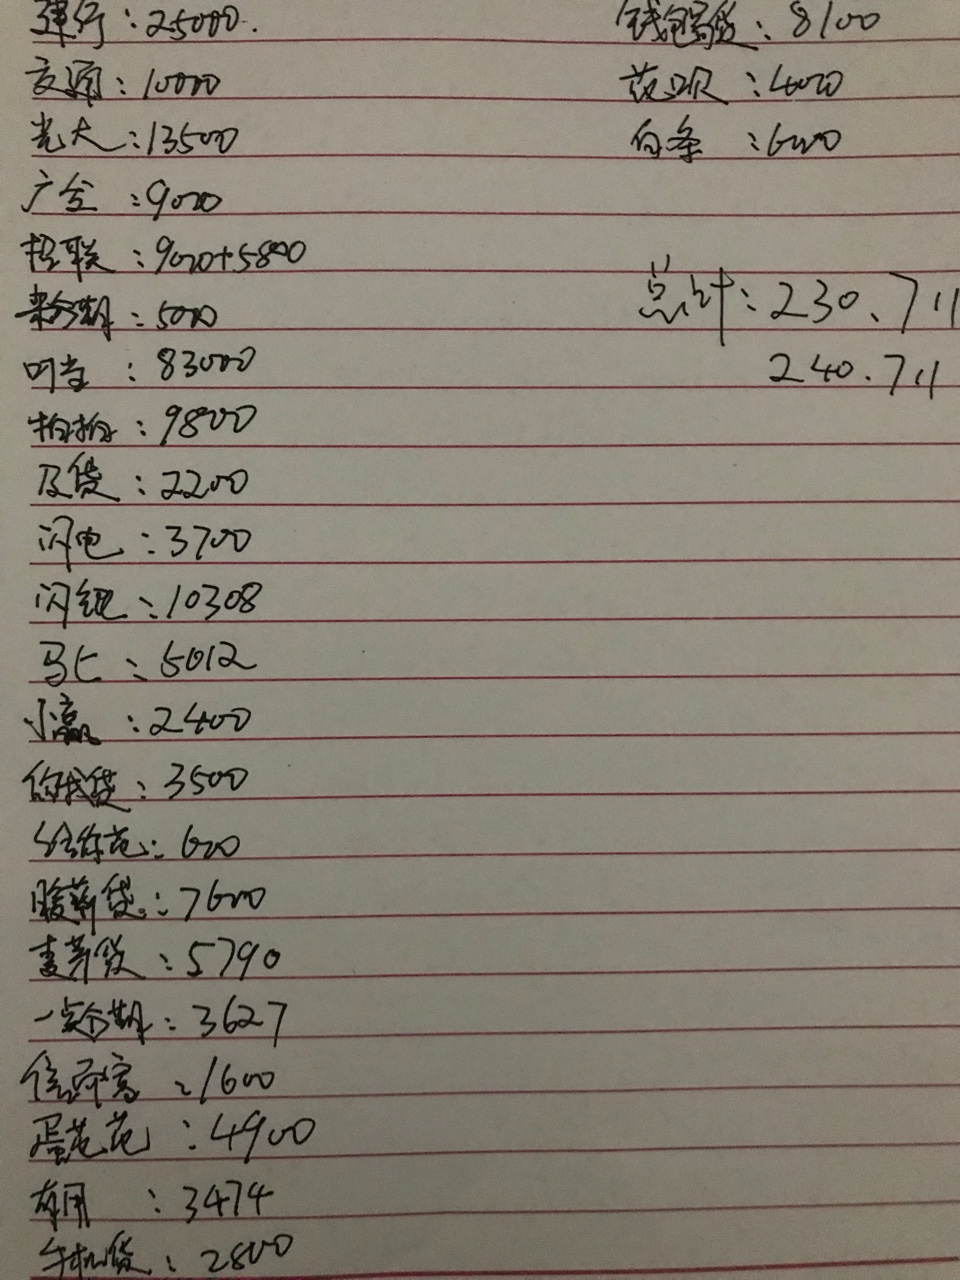 建行：25000.
交通：10000
光大：13500
广发：9000
招联：9000+5800
来分期：5000
叮当：83000
拍拍：9800
及贷：2200
闪电：3700
闪银：10308
马上：5012
小赢：2400
你我贷：3500
给你花：600
暖薪贷：7600
麦芽贷：5790
一点分期：3627
信而富：1600
蛋花花：4900
有用：3474
手机贷：2800
钱包易贷：8100
花呗：4000
白条：6000
总计：230.711
240.711